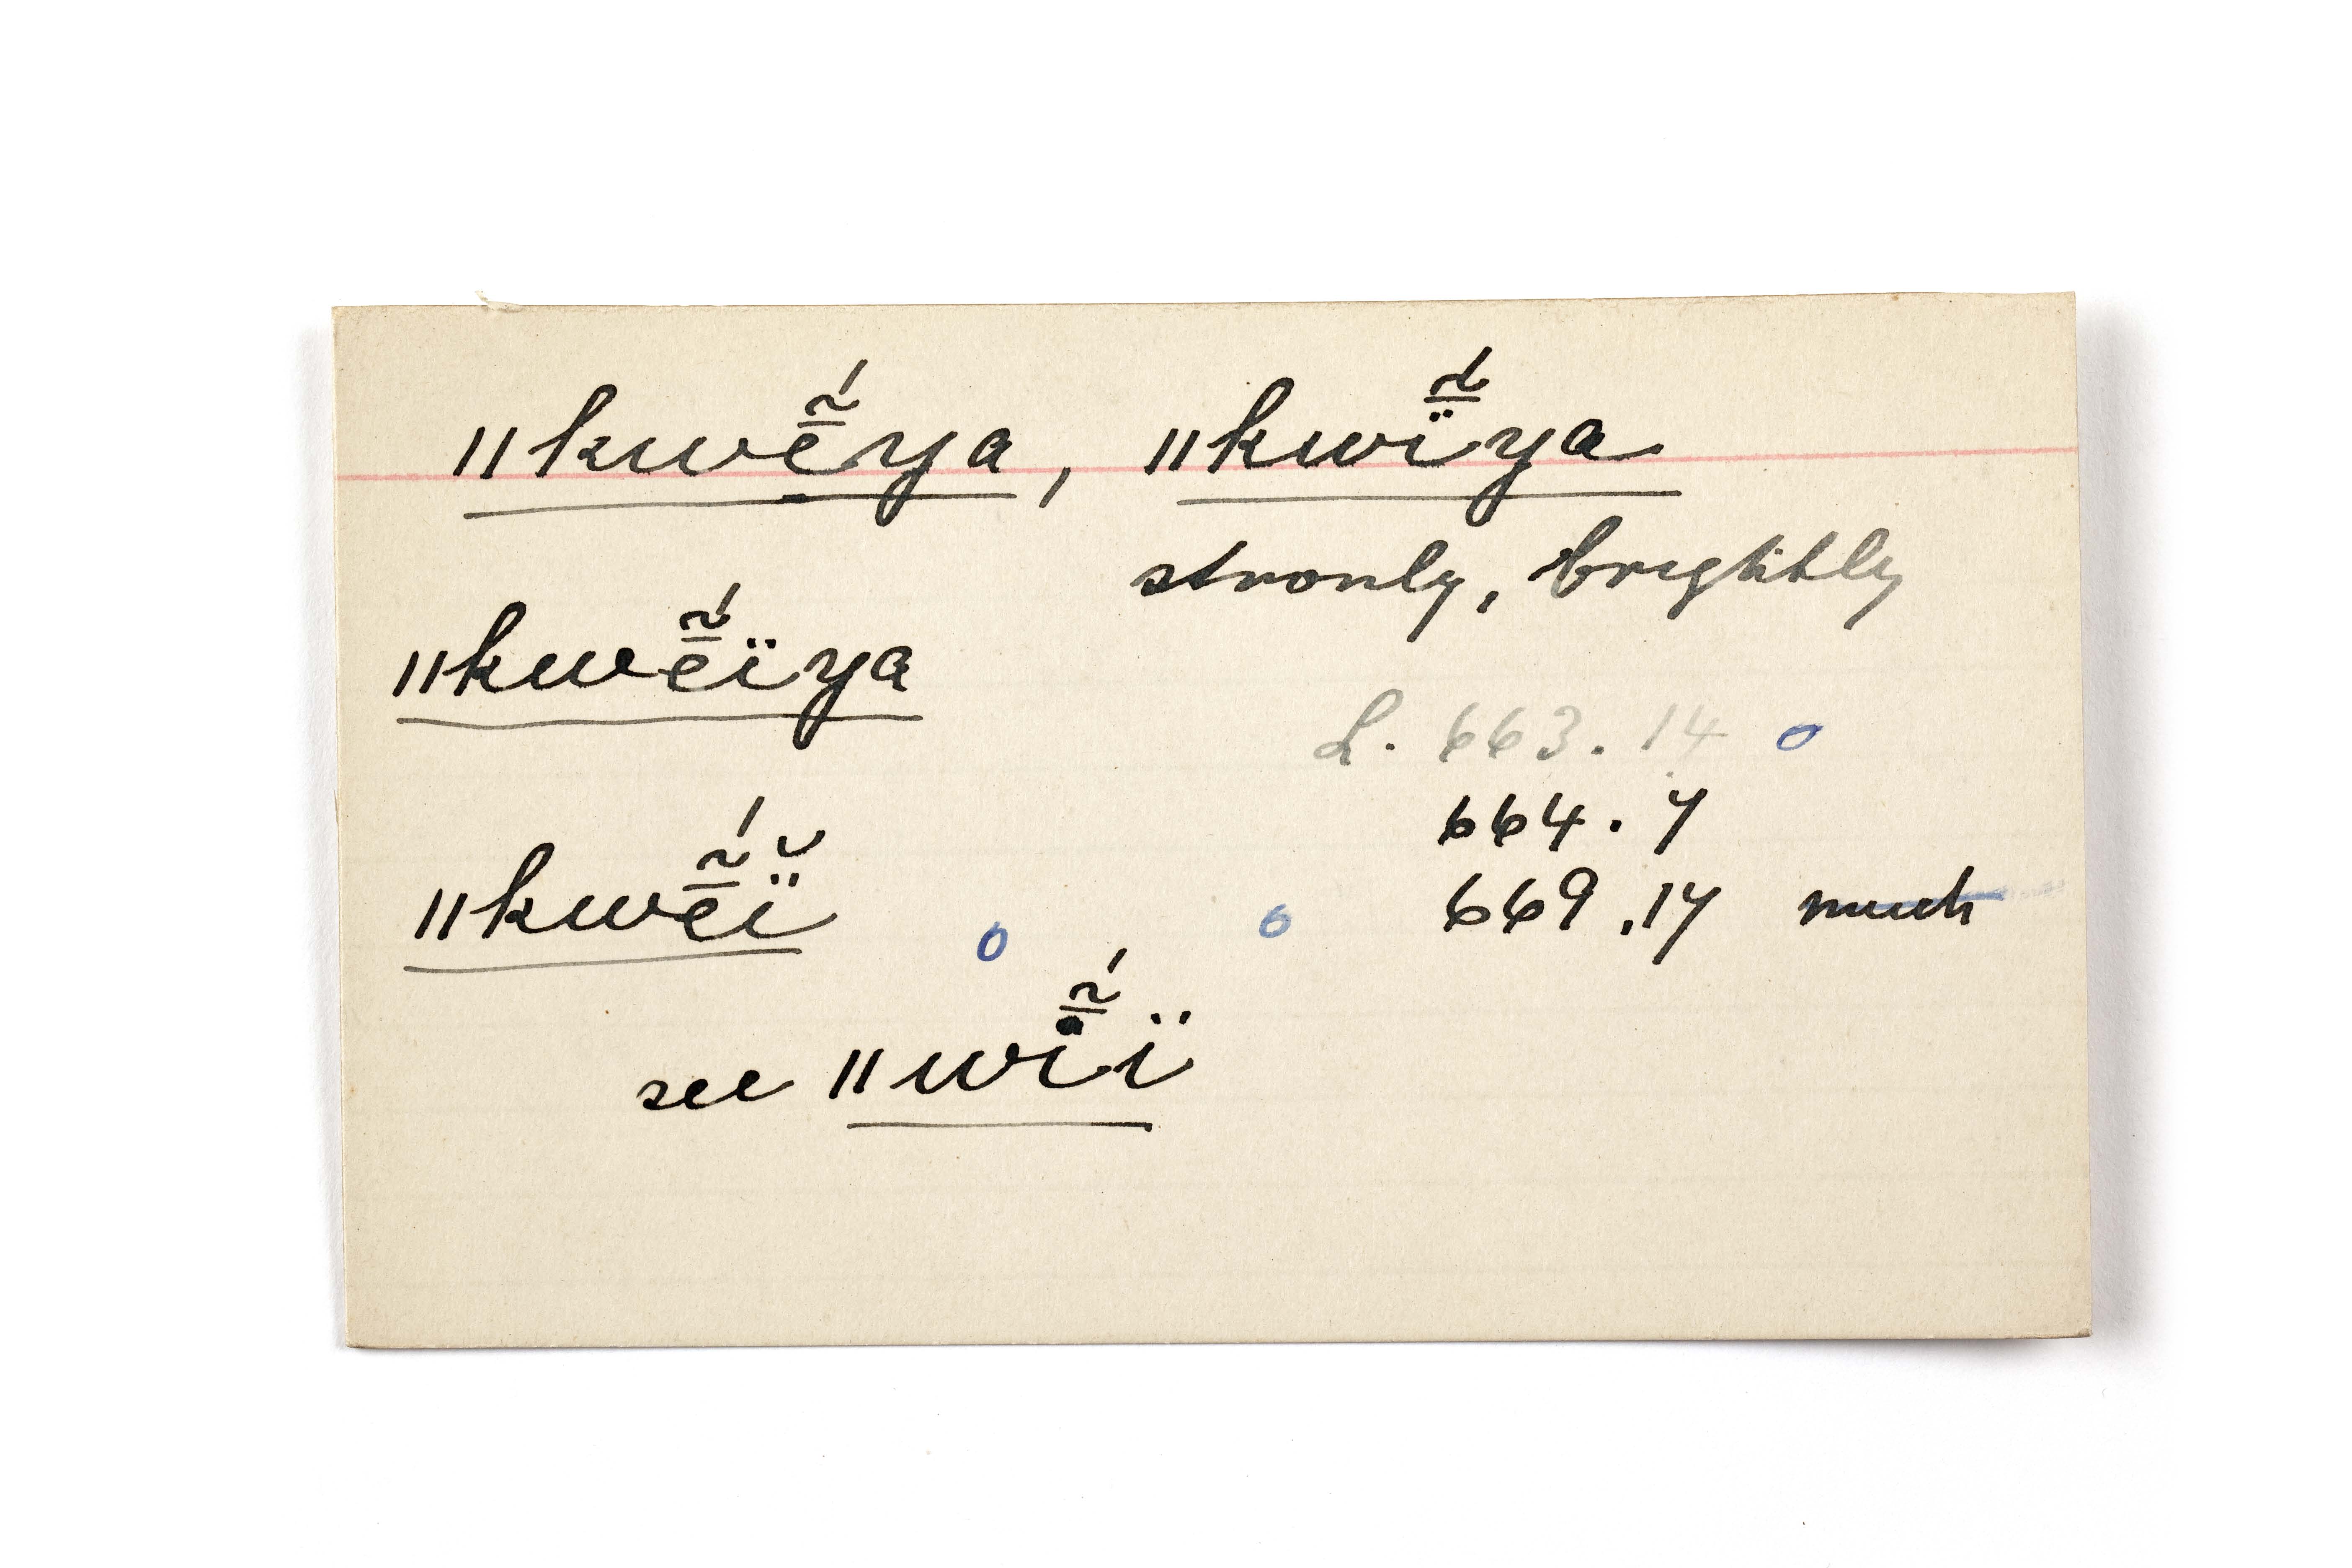 ǁkwḗ̃́ya, ǁkwï̄̃́ya
stronly, brightly
ǁkwē̃́ïya
L. 663.14 o
664.7
ǁkwē̃́ï̆ o o 669.17 much
see ǁwī̃́ï